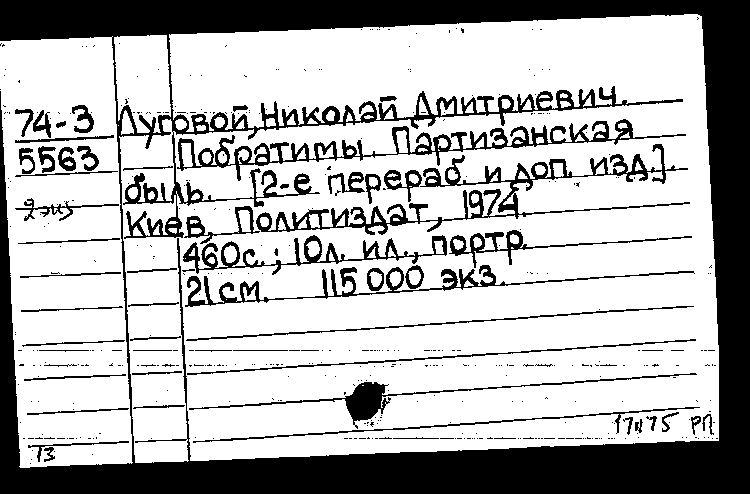 74-3 Луговой, Николай Дмитриевич.
5563 Побратимы. Партизанская
быль. [2-е перераб. и доп. изд.].
2 экз Киев, Политиздат, 1974.
460с.; 10л. ил., портр.
21см. 115 000 экз.
РП
73